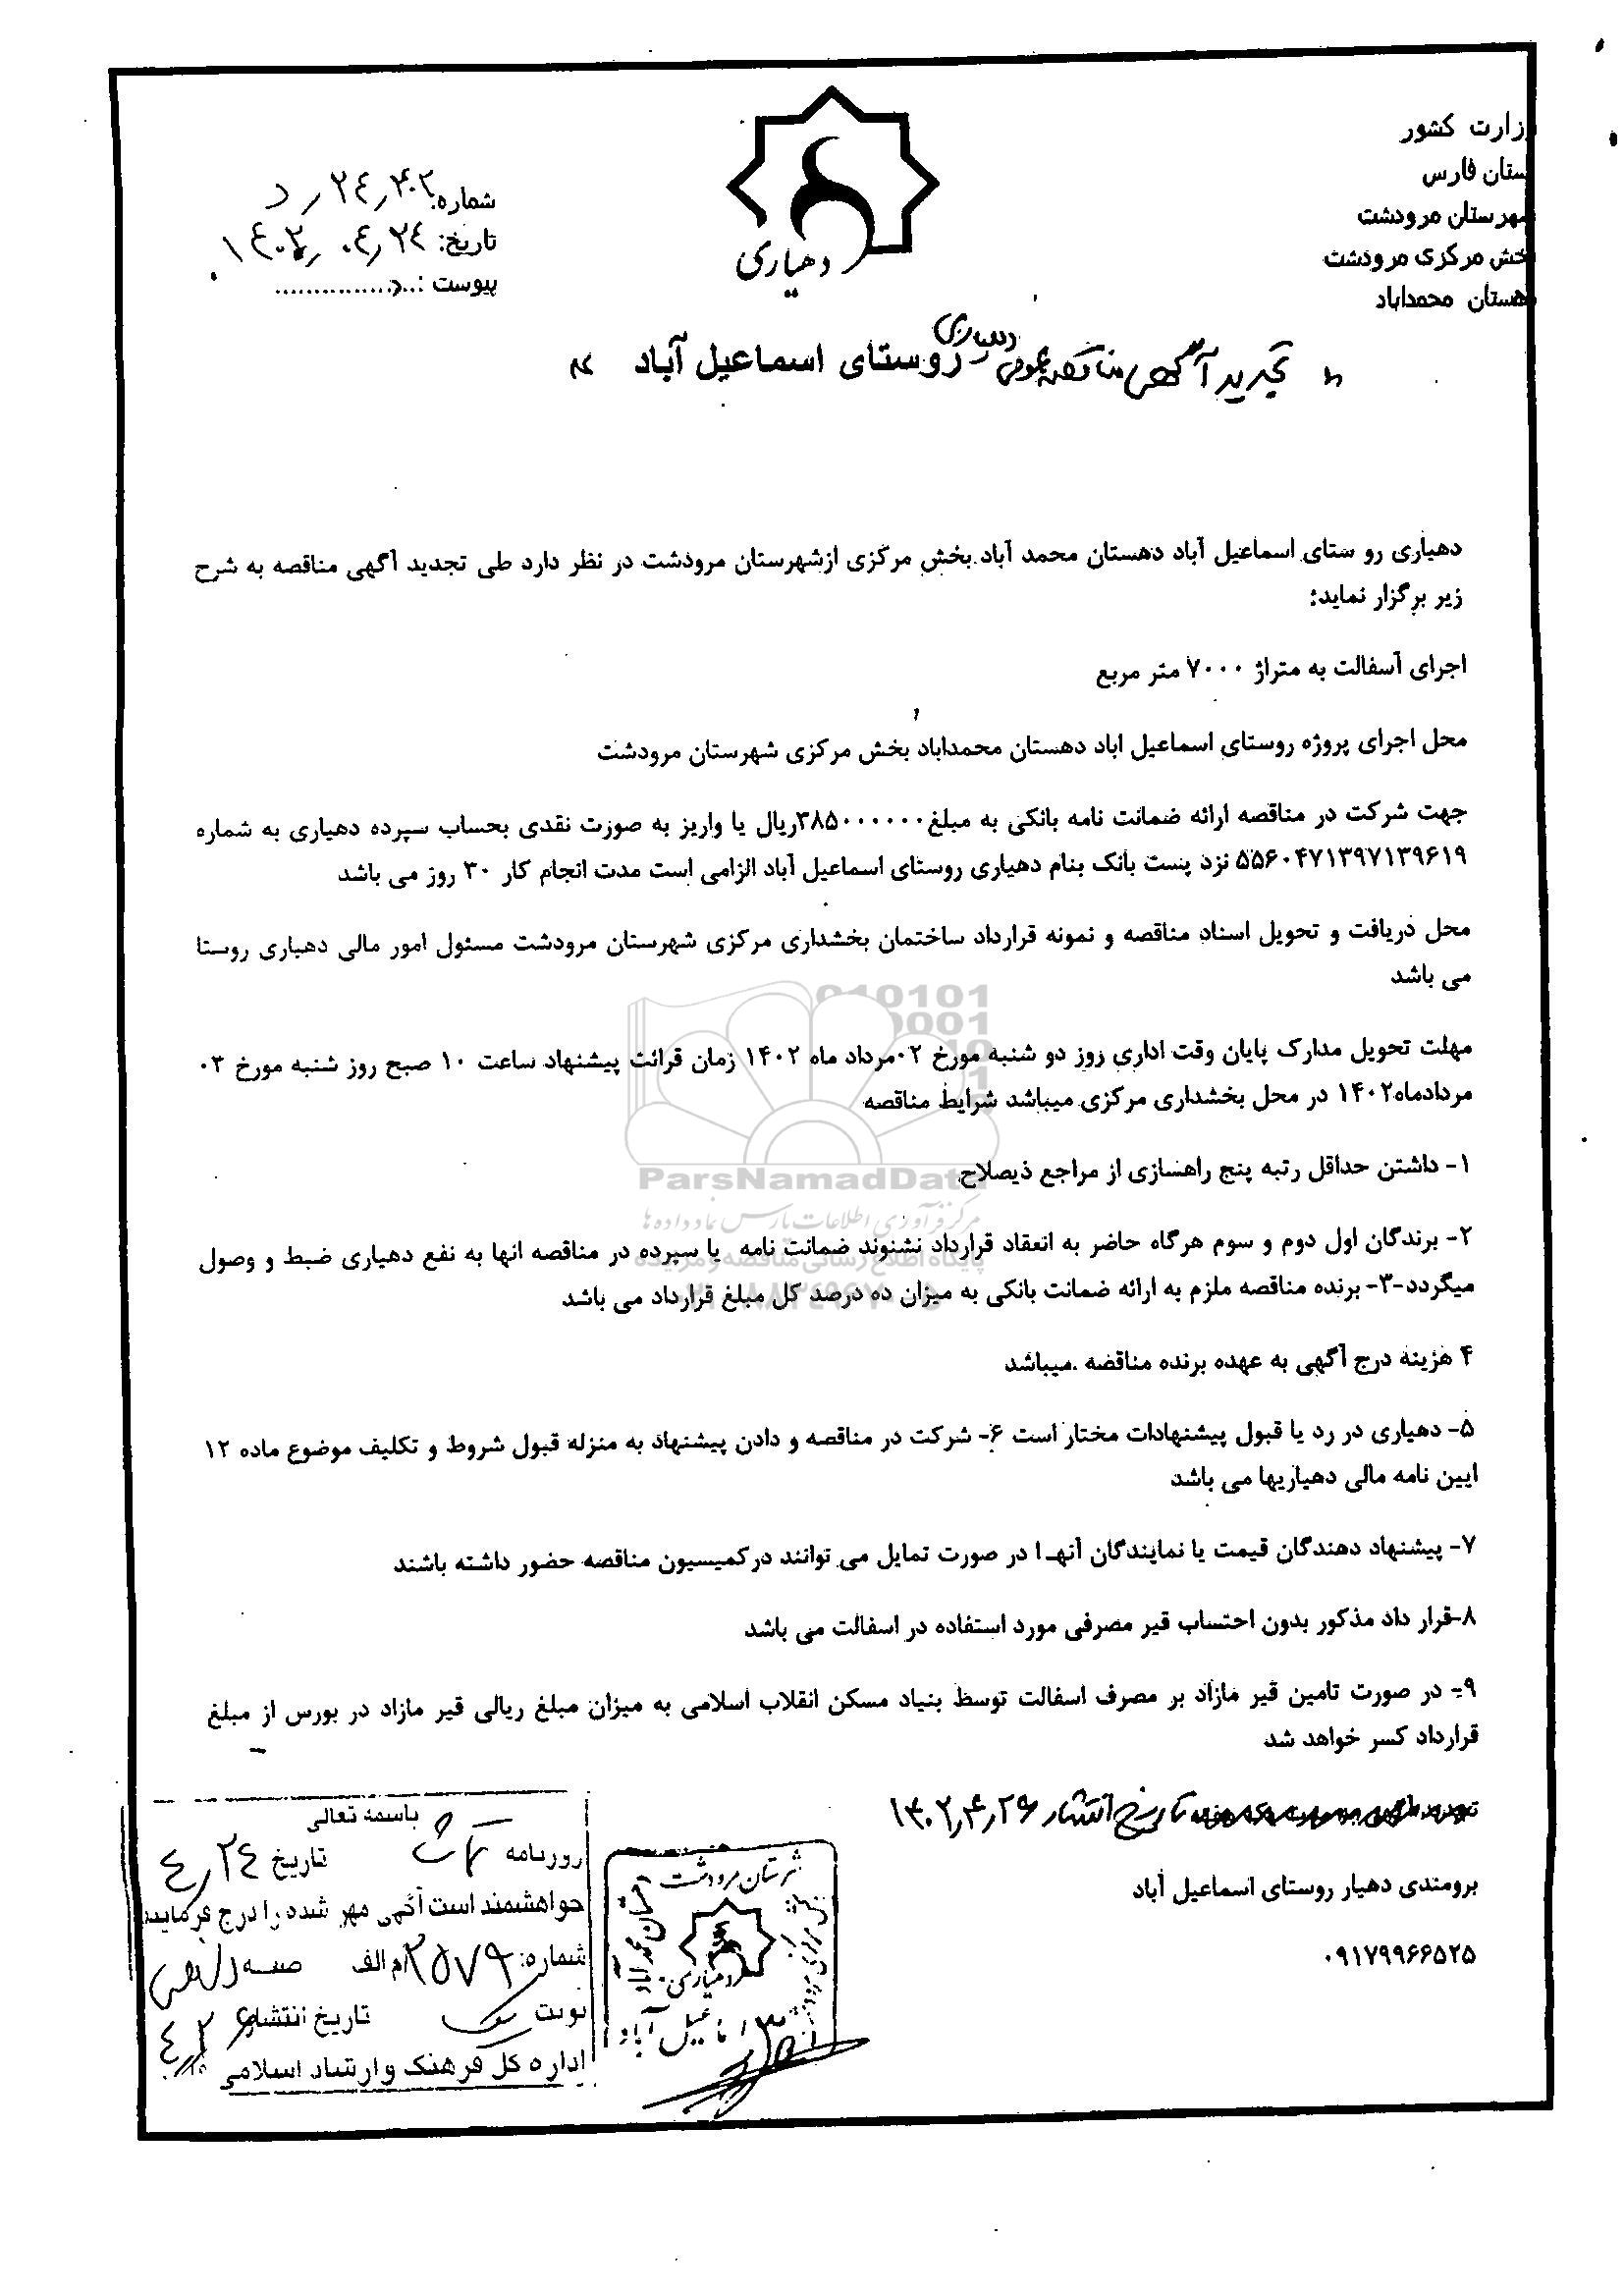 وزارت کشور
استان فارس
شهرستان مرودشت
بخش مرکزی مرودشت
دهستان محمداباد
دهیاری
شماره: ۲۴,۴۰۲ , د
تاریخ: ۱۴۰۲, ۰۴, ۲۴
پیوست :
تجدید آگهی مناقصه عمومی دهیاری روستای اسماعیل آباد
دهیاری رو ستای اسماعیل آباد دهستان محمد آباد بخش مرکزی ازشهرستان مرودشت در نظر دارد طی تجدید آگهی مناقصه به شرح
زیر برگزار نماید:
اجرای آسفالت به متراژ ۷۰۰۰ متر مربع
محل اجرای پروژه روستای اسماعیل اباد دهستان محمداباد بخش مرکزی شهرستان مرودشت
جهت شرکت در مناقصه ارائه ضمانت نامه بانکی به مبلغ ۳۸۵۰۰۰۰۰۰ریال یا واریز به صورت نقدی بحساب سپرده دهیاری به شماره
۵۵۶۰۴۷۱۳۹۷۱۳۹۶۱۹ نزد پست بانک بنام دهیاری روستای اسماعیل آباد الزامی است مدت انجام کار ۳۰ روز می باشد
محل دریافت و تحویل اسناد مناقصه و نمونه قرارداد ساختمان بخشداری مرکزی شهرستان مرودشت مسئول امور مالی دهیاری روستا
می باشد
مهلت تحویل مدارک پایان وقت اداری روز دو شنبه مورخ ۰۲مرداد ماه ۱۴۰۲ زمان قرائت پیشنهاد ساعت ۱۰ صبح روز شنبه مورخ ۰۳
مردادماه۱۴۰۲ در محل بخشداری مرکزی میباشد شرایط مناقصه
۱- داشتن حداقل رتبه پنج راهسازی از مراجع ذیصلاح
۲- برندگان اول دوم و سوم هرگاه حاضر به انعقاد قرارداد نشنوند ضمانت نامه یا سپرده در مناقصه انها به نفع دهیاری ضبط و وصول
میگردد-۳- برنده مناقصه ملزم به ارائه ضمانت بانکی به میزان ده درصد کل مبلغ قرارداد می باشد
۴ هزینه درج آگهی به عهده برنده مناقصه .میباشد
۵- دهیاری در رد یا قبول پیشنهادات مختار است ۶- شرکت در مناقصه و دادن پیشنهاد به منزله قبول شروط و تکلیف موضوع ماده ۱۲
ایین نامه مالی دهیاریها می باشد
۷- پیشنهاد دهندگان قیمت یا نمایندگان آنهـا در صورت تمایل می توانند درکمیسیون مناقصه حضور داشته باشند
۸-قرار داد مذکور بدون احتساب قیر مصرفی مورد استفاده در اسفالت می باشد
۹- در صورت تامین قیر مازاد بر مصرف اسفالت توسط بنیاد مسکن انقلاب اسلامی به میزان مبلغ ریالی قیر مازاد در بورس از مبلغ
قرارداد کسر خواهد شد
تاریخ انتشار ۱۴۰۲,۴,۲۶
برومندی دهیار روستای اسماعیل آباد
۰۹۱۷۹۹۶۶۵۲۵
شهرستان مرودشت
دهیاری
اسماعیل آباد
باسمه تعالی
روزنامه تاریخ ۴,۲۴
خواهشمند است آگهی مهر شده را درج فرمایید
شماره: ۲۵۷۹ م الف
نوبت یک تاریخ انتشار ۴,۲۶
اداره کل فرهنگ و ارشاد اسلامی
010101
0001
ParsNamadData
مرکز فرآوری اطلاعات پارس نماد داده ها
پایگاه اطلاع رسانی مناقصه و مزایده